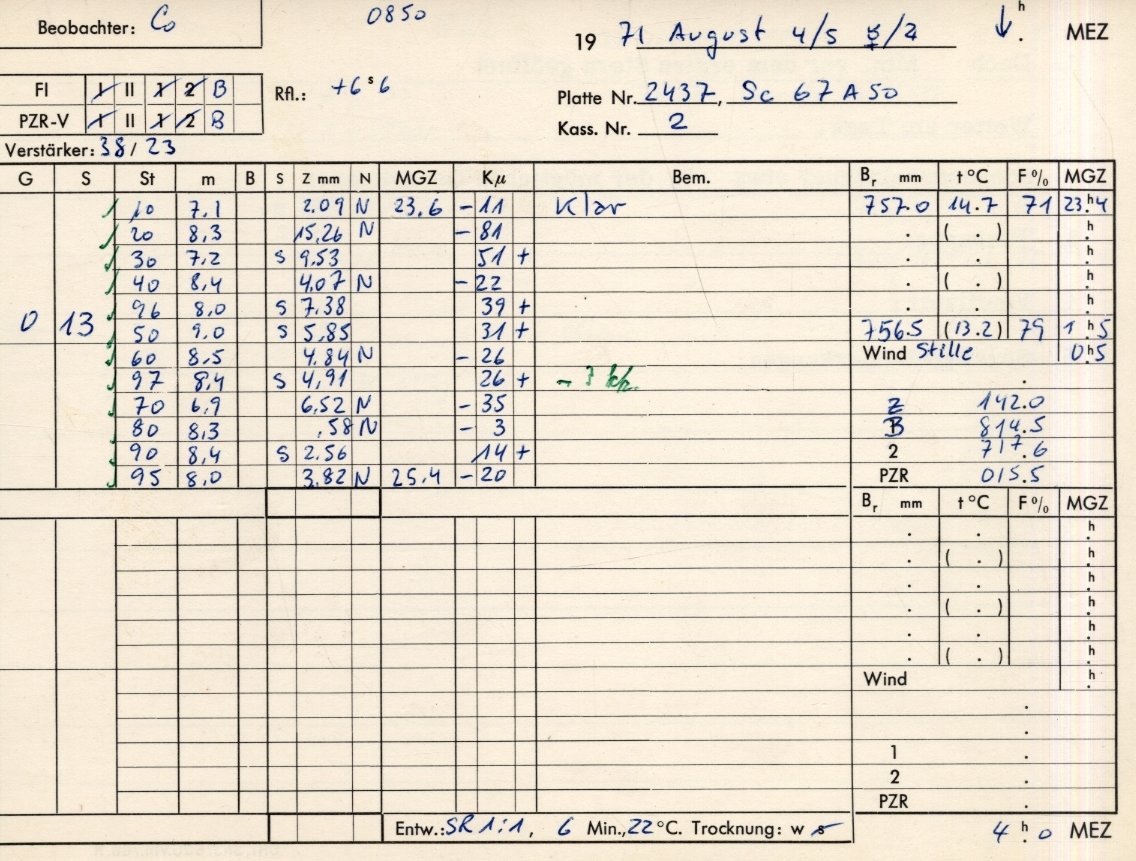 Beobachter: Co 0850
19 71 August 4/5 ☿/♃ ↓ h . MEZ
FI I II 1 2 B Rfl.: +6ˢ6
PZR-V I II 1 2 B
Platte Nr. 2437, Sc 67 A 50
Kass. Nr. 2
Verstärker: 38/23
G S St m B S Z mm N MGZ Kμ Bem. Br mm t°C F% MGZ
10 7.1 2.09 N 23.6 -11 Klar 757.0 14.7 71 23.h4
20 8,3 15,26 N -81 . ( . ) h.
30 7,2 S 9,53 51 + . . h.
40 8,4 4,07 N -22 . ( . ) h.
96 8,0 S 7,38 39 + . . h.
0 13 50 9,0 S 5,85 31 + 756.5 (13.2) 79 1.h5
60 8,5 4,84 N -26 Wind Stille 0h5
97 8,4 S 4,91 26 +
70 6,9 6,52 N -35 Z 142.0
80 8,3 ,58 N -3 B 814.5
90 8,4 S 2.56 14 + 2 717.6
95 8,0 3,82 N 25.4 -20 PZR 015.5
Br mm t°C F% MGZ
. . h.
. ( . ) h.
. . h.
. ( . ) h.
. . h.
. ( . ) h.
Wind h.
1 .
2 .
PZR .
Entw.: SR 1:1, 6 Min., 22°C. Trocknung: w s 4 h. 0 MEZ